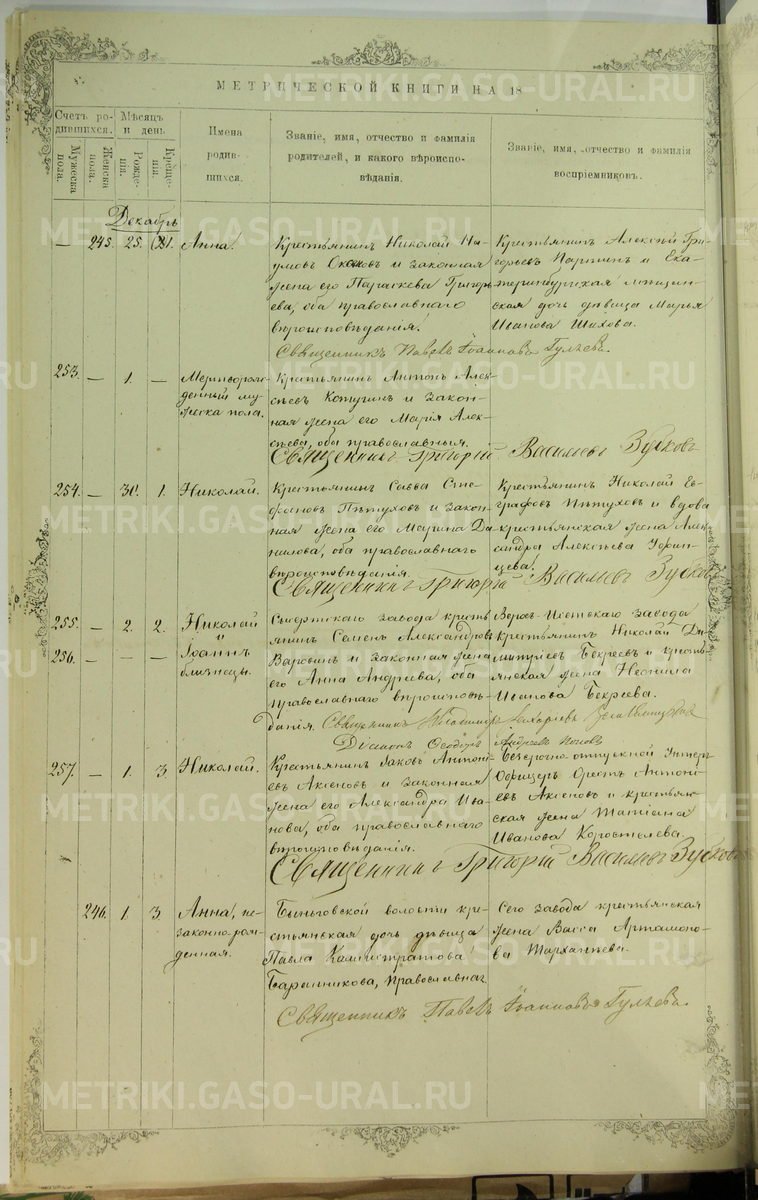 МЕТРИЧЕСКОЙ КНИГИ НА 18
Счетъ родившихся.
Мѣсяцъ и день.
Имена родившихся.
Званіе, имя, отчество и фамилія родителей, и какого вѣроисповѣданія.
Званіе, имя, отчество и фамилія воспріемниковъ.
Мужеска пола.
Женска пола.
Рожденія.
Крещенія.
Декабрь
— 245. 25. Анна.
Крестьянинъ Николай Наумовъ
и законная
жена его Параскева Григорьева, оба православнаго
вѣроисповѣданія.
Крестьянинъ Алексѣй Григорьевъ
и Екатеринбургская мѣщанская дочь дѣвица Марья
Иванова
Священникъ Павелъ Іоанновъ Гуляевъ.
253. — 1. —
Мертворожденный мужеска пола.
Крестьянинъ Антонъ Алексѣевъ
и законная жена его Марія Алексѣева, оба православныя.
Священникъ Григорій Васильевъ Зубковъ
254. — 30. 1. Николай.
Крестьянинъ Савва
Пѣтуховъ и законная жена его Марина Данилова, оба православнаго
вѣроисповѣданія.
Крестьянинъ Николай Евграфовъ Пѣтуховъ и вдова
крестьянская жена Александра Алексѣева
Священникъ Григорій Васильевъ Зубковъ
255. — 2. 2. Николай
и
256. — — — Іоаннъ
близнецы.
завода крестьянинъ Семенъ Александровъ
и законная жена
его Анна Андреева, оба
православнаго вѣроисповѣданія.
Верхъ-Исетскаго завода
крестьянинъ Николай
и крестьянская жена Неонила
Иванова
Священникъ
Діаконъ Ѳеодоръ
257. — 1. 3. Николай.
Крестьянинъ Яковъ Антоніевъ Аксеновъ и законная
жена его Александра Иванова, оба православнаго
вѣроисповѣданія.
Безсрочно-отпускной Унтеръ
Офицеръ Орестъ Антоніевъ Аксеновъ и крестьянская жена Татіана
Иванова Коростелева.
Священникъ Григорій Васильевъ Зубковъ
246. 1. 3. Анна, незаконнорожденная.
Быньговской волости крестьянская дочь дѣвица
Павла Каллистратова
Баранникова, Православная
Сего завода крестьянская
жена Васса Артамонова
Священникъ Павелъ Іоанновъ Гуляевъ.
METRIKI.GASO-URAL.RU